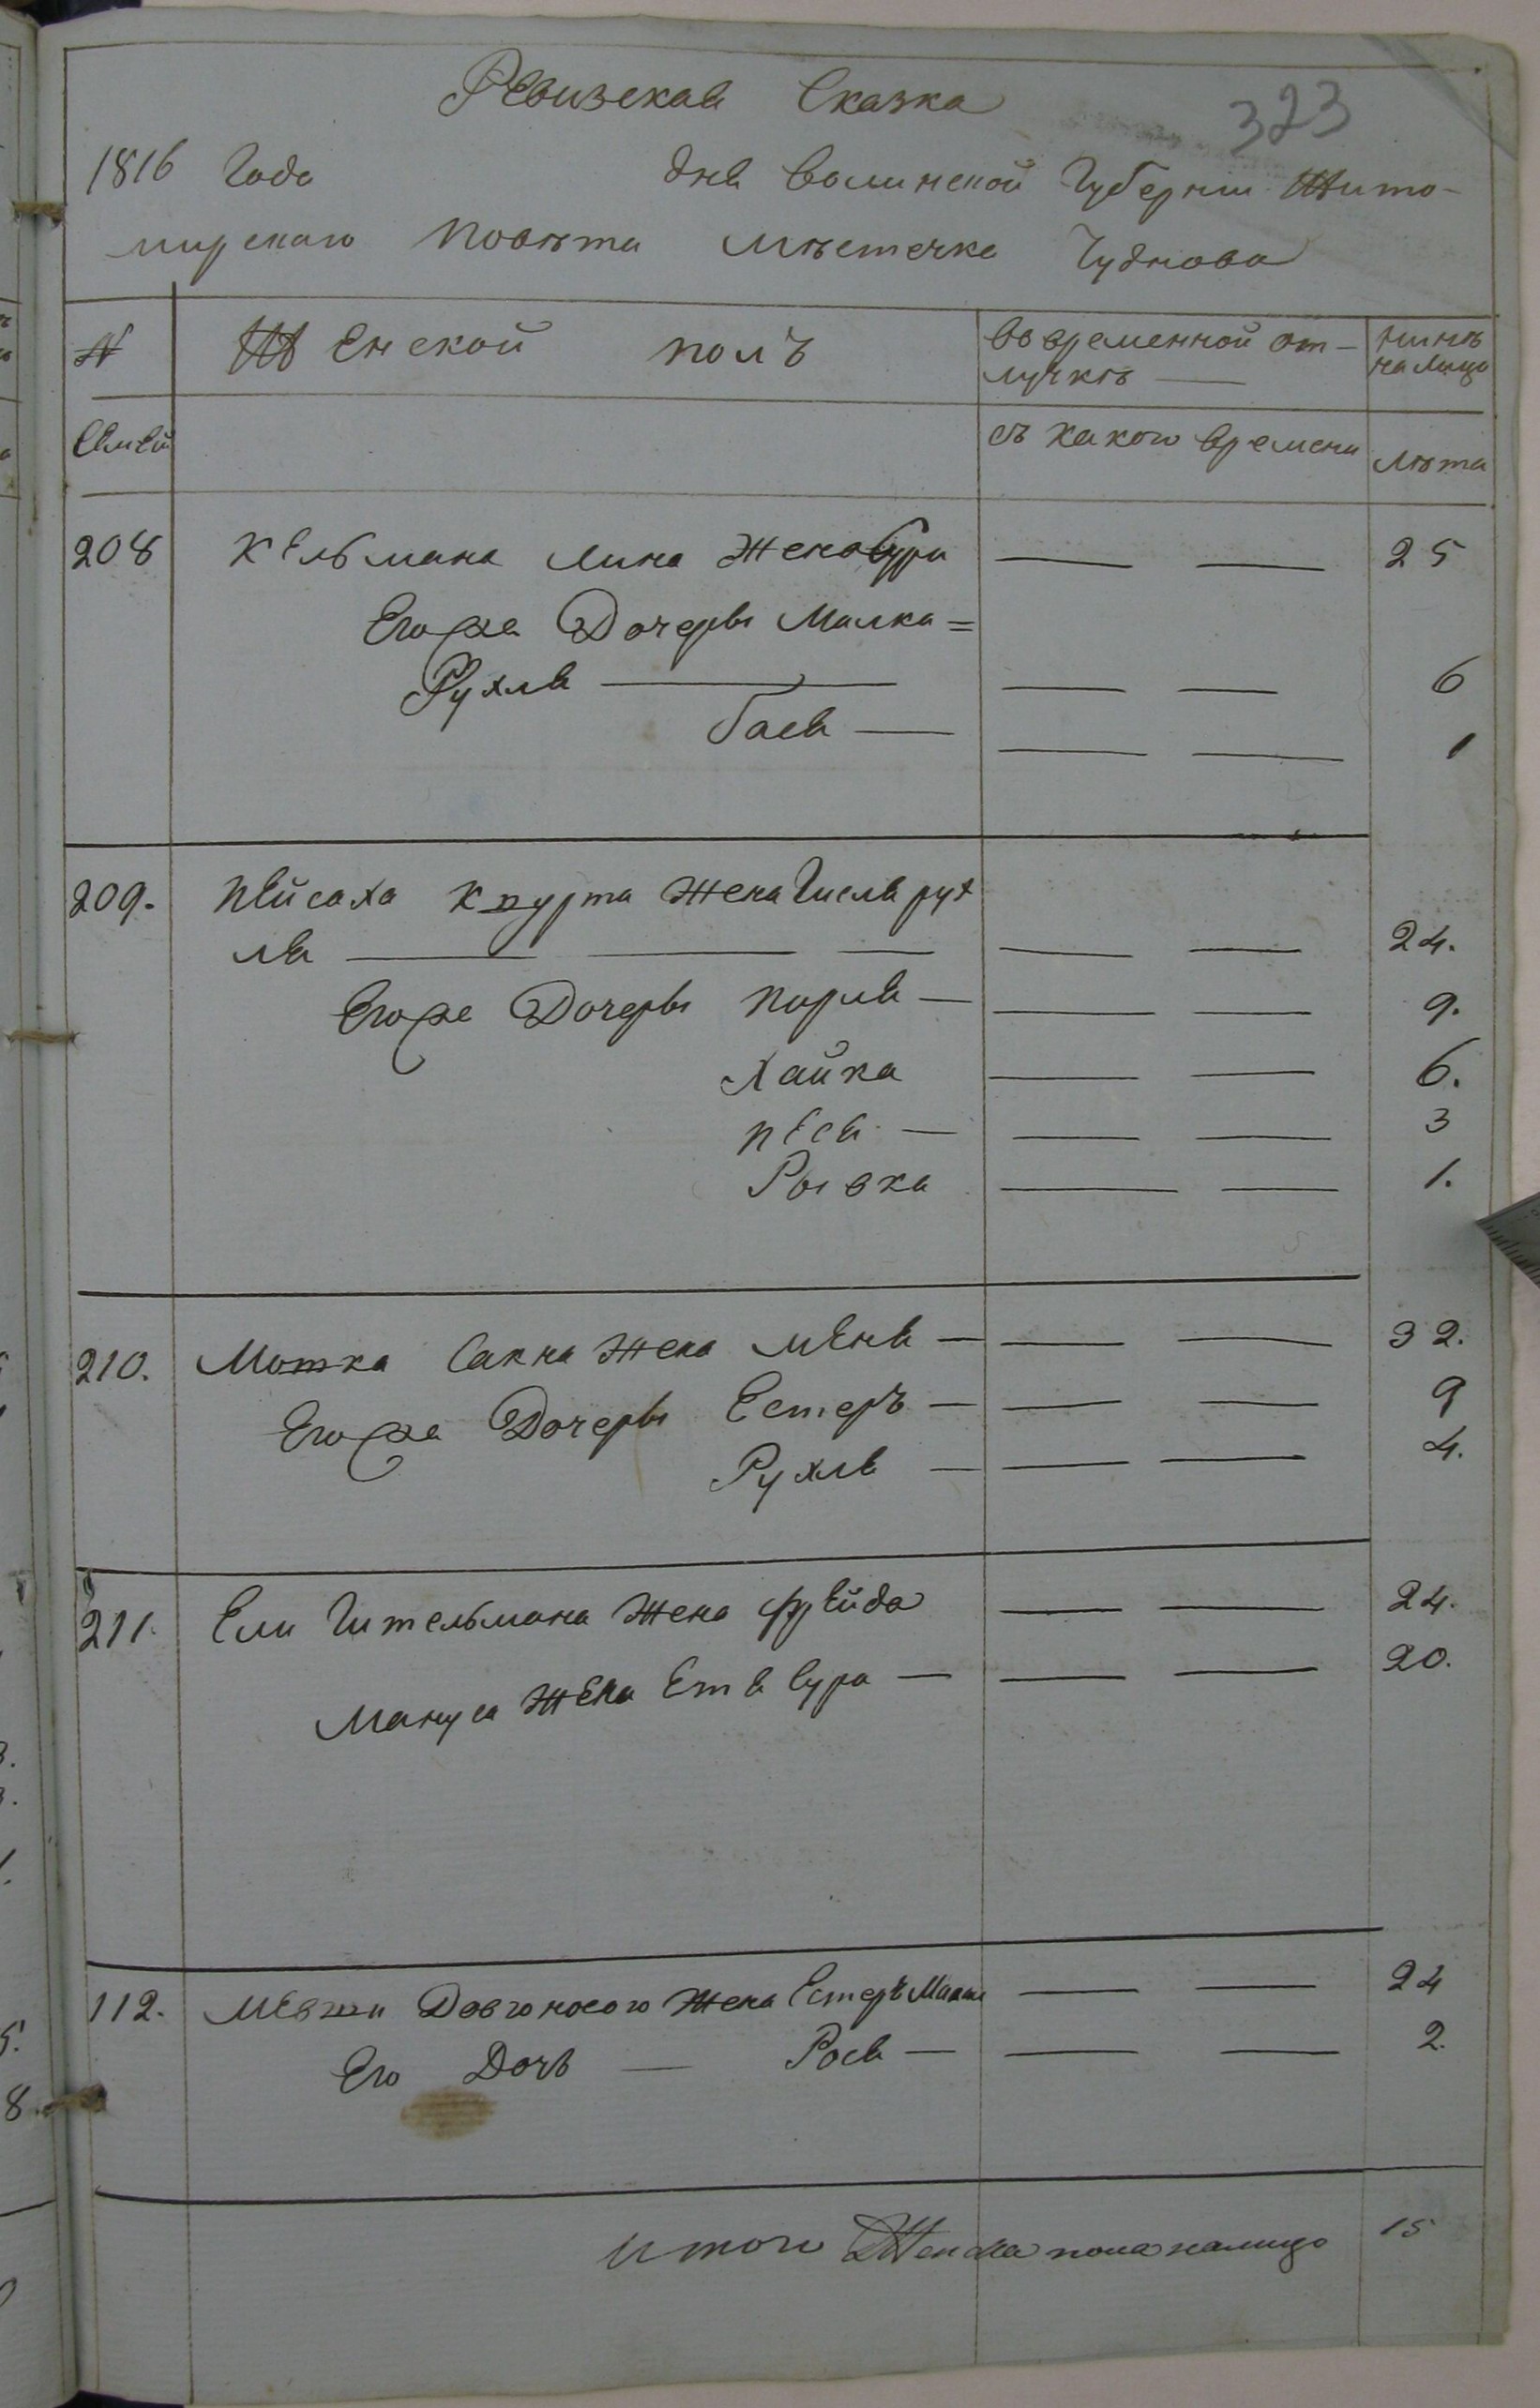 Ревизская Сказка
323
1816 Года дня Волинской Губернии Жито-
мирскаго Повѣта мѣстечка Чуднова
№ Женской полъ во временной от- нинѣ
лучкѣ — на лицо
Семей съ какого времени лѣта
208 Кельмана Лина Жена Сура — — 25
Его же Дочеры Малка=
Рухля — — — 6
Бася — — — 1
209. Пейсаха Жена Гисля рух
ля — — — — — 24.
Его же Дочеры Перля — — — 9.
Хайка — — 6.
песя — — — 3
Рывка — — 1.
210. Мошка Сакна Жена меня — — — 32.
Его же Дочеры Естеръ — — — 9
Рухля — — — 4.
211. Ели Гительмана Жена фрейда — — 24.
Мануса Жена Етя Сура — — — 20.
112. Мевши Довгоносого Жена Естеръ Малка — — 24
Его Дочь — Рося — — — 2.
Итого Женска пола налицо 15